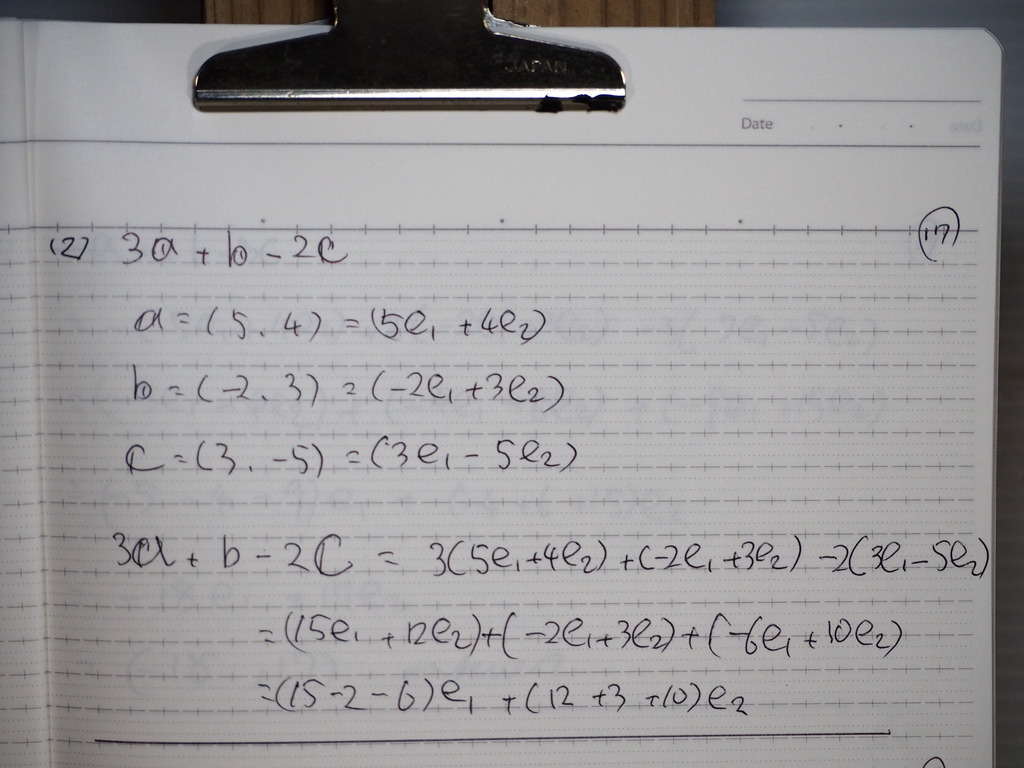 JAPAN
Date
(2) 3a + b - 2c
(17)
a = (5. 4) = (5e₁ + 4e₂)
b = (-2. 3) = (-2e₁ + 3e₂)
c = (3. -5) = (3e₁ - 5e₂)
3a + b - 2c = 3(5e₁+4e₂) + (-2e₁+3e₂) -2(3e₁-5e₂)
= (15e₁ + 12e₂)+(-2e₁+3e₂)+(-6e₁+10e₂)
= (15-2-6)e₁ + (12 +3 +10)e₂